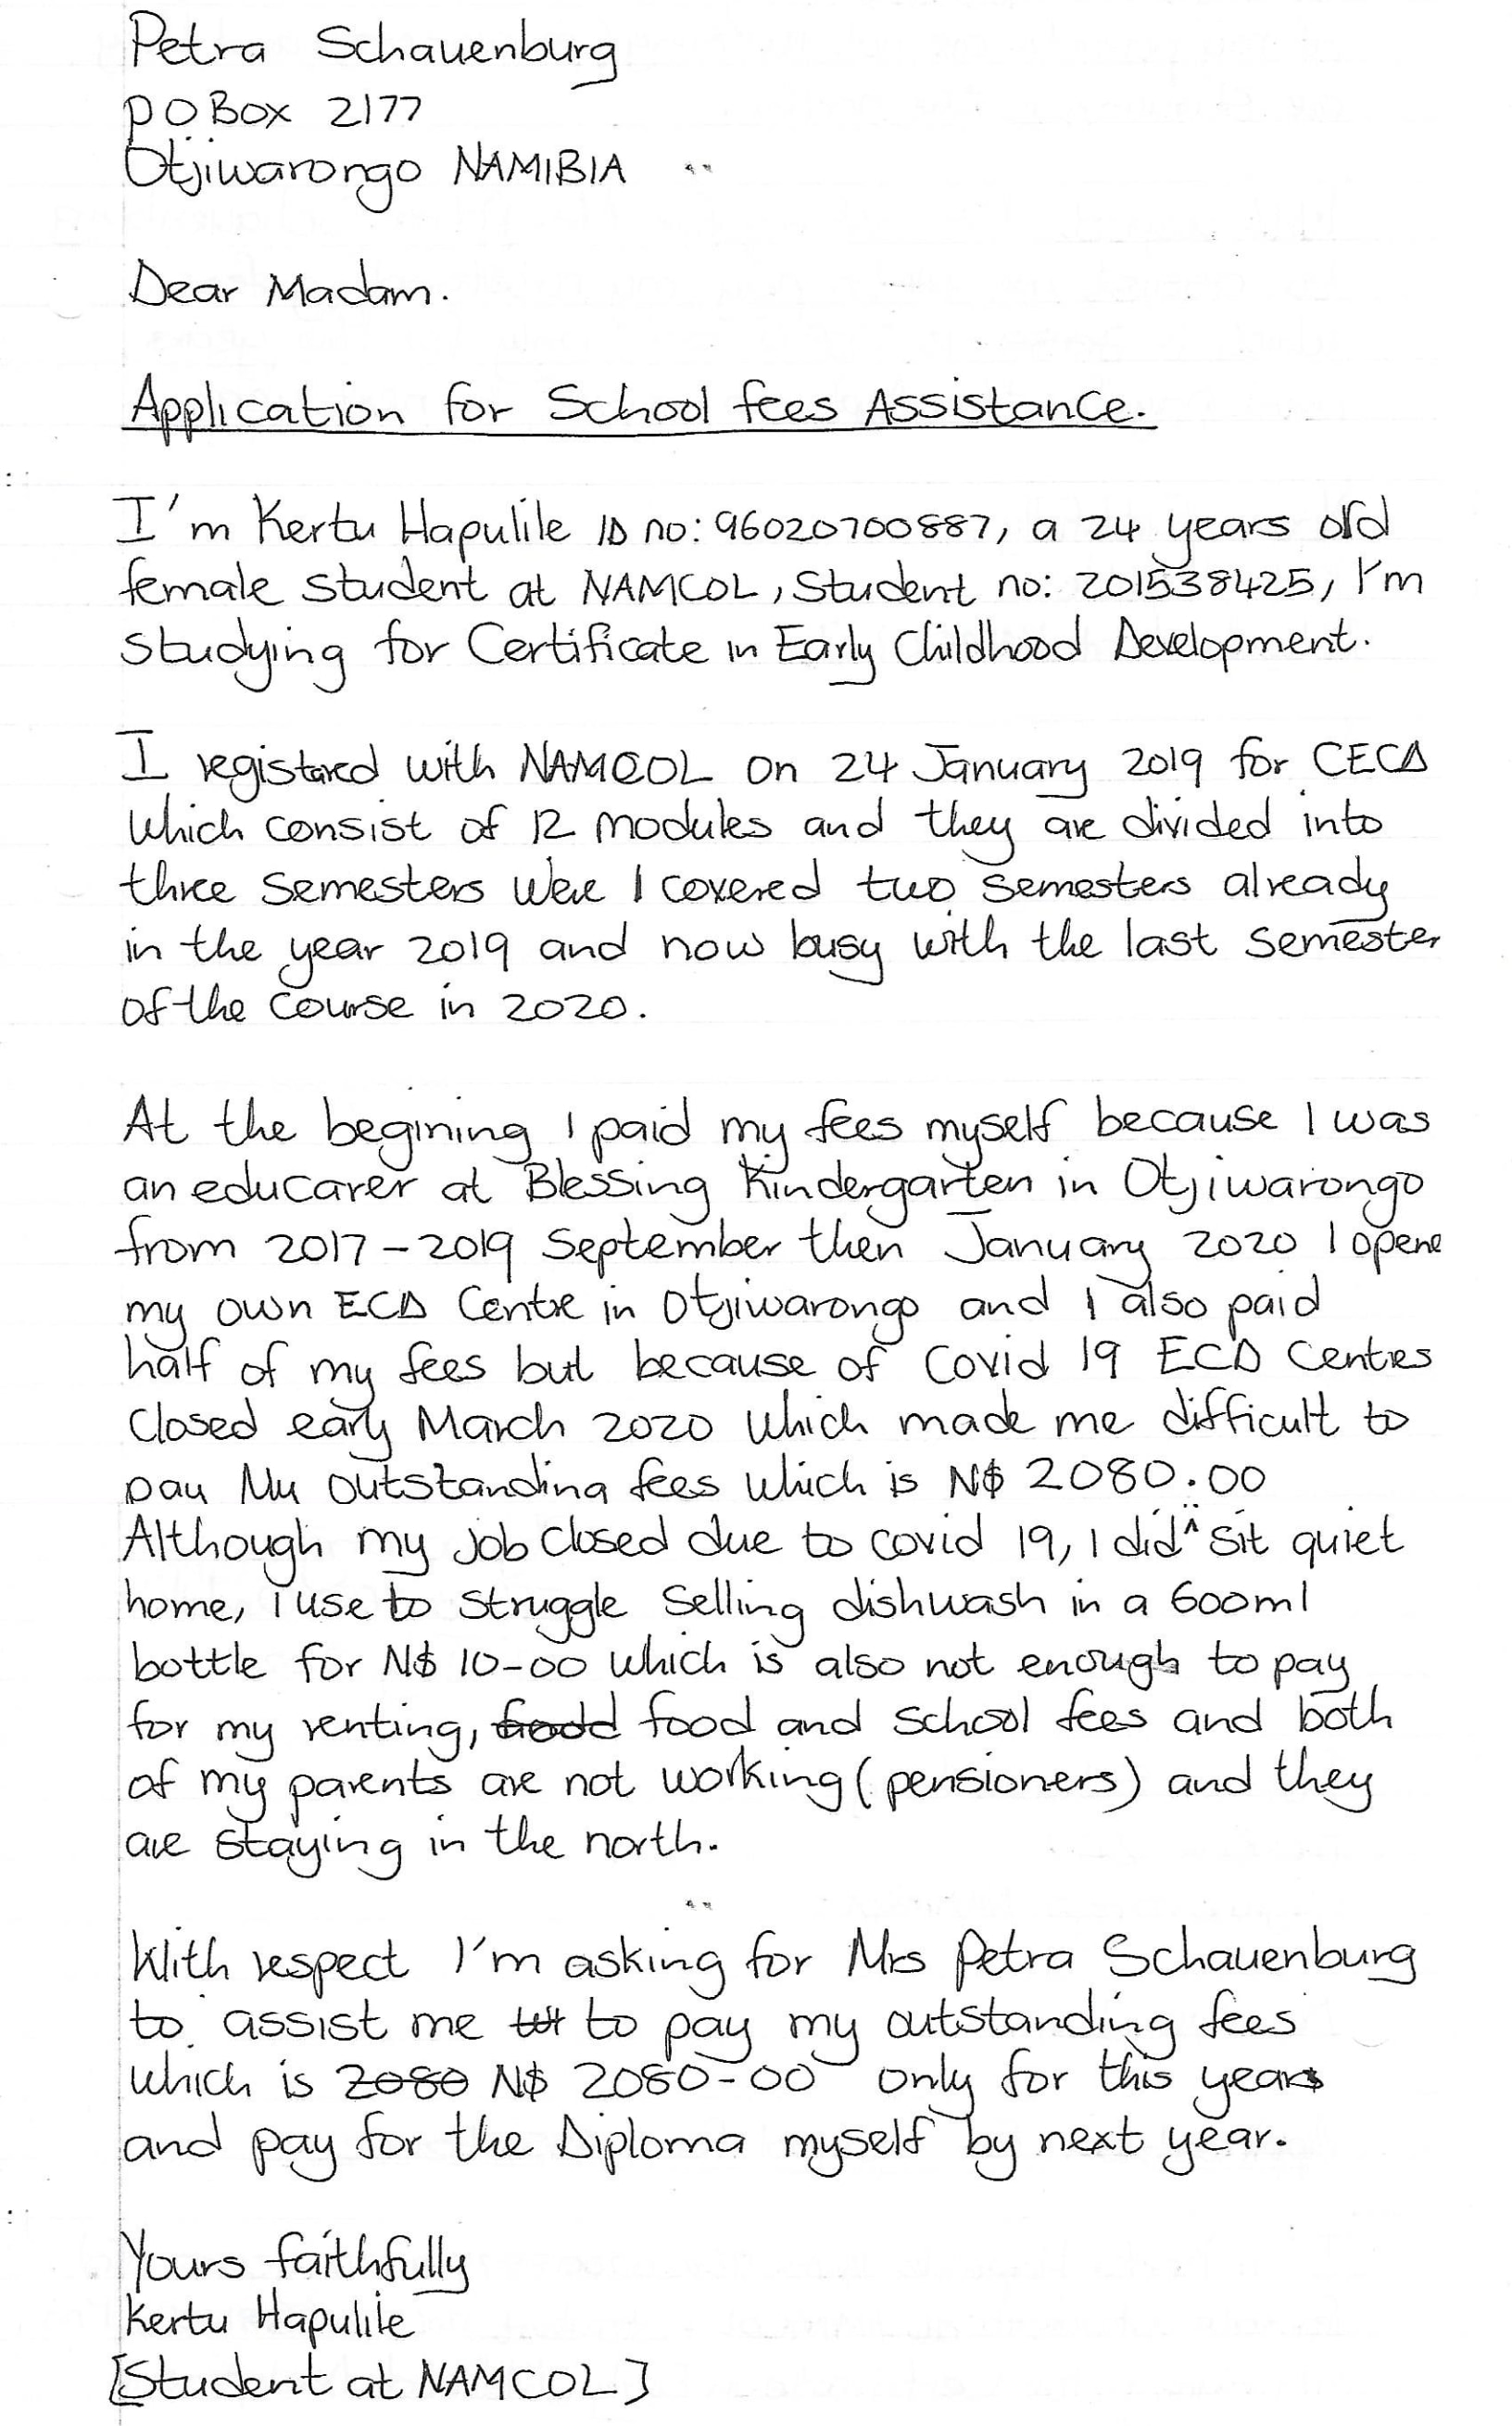 Petra Schauenburg
PO Box 2177
Otjiwarongo NAMIBIA
Dear Madam.
Application for School fees Assistance.
I'm Kertu Hapulile ID no: 96020700887, a 24 years old
female student at NAMCOL, Student no: 201538425, I'm
Studying for Certificate in Early Childhood Development.
I registared with NAMCOL on 24 January 2019 for CECD
Which consist of 12 modules and they are divided into
three Semesters Were I covered two semesters already
in the year 2019 and now busy with the last semester
of the Course in 2020.
At the begining I paid my fees myself because I was
an educarer at Blessing Kindergarten in Otjiwarongo
from 2017-2019 September then January 2020 I opene
my own ECD Centre in Otjiwarongo and I also paid
half of my fees but because of Covid 19 ECD Centres
Closed early March 2020 Which made me difficult to
pay My outstanding fees Which is N$ 2080.00
Although my job Closed due to covid 19, I did^ sit quiet
home, i use to struggle Selling dishwash in a 600ml
bottle for N$ 10-00 Which is also not enough to pay
for my renting, foodd food and School fees and both
of my parents are not working (pensioners) and they
are staying in the north.
With respect I'm asking for Mrs Petra Schauenburg
to assist me to pay my outstanding fees
Which is 2080 N$ 2080-00 only for this year
and pay for the Diploma myself by next year.
Yours faithfully
Kertu Hapulile
[Student at NAMCOL]